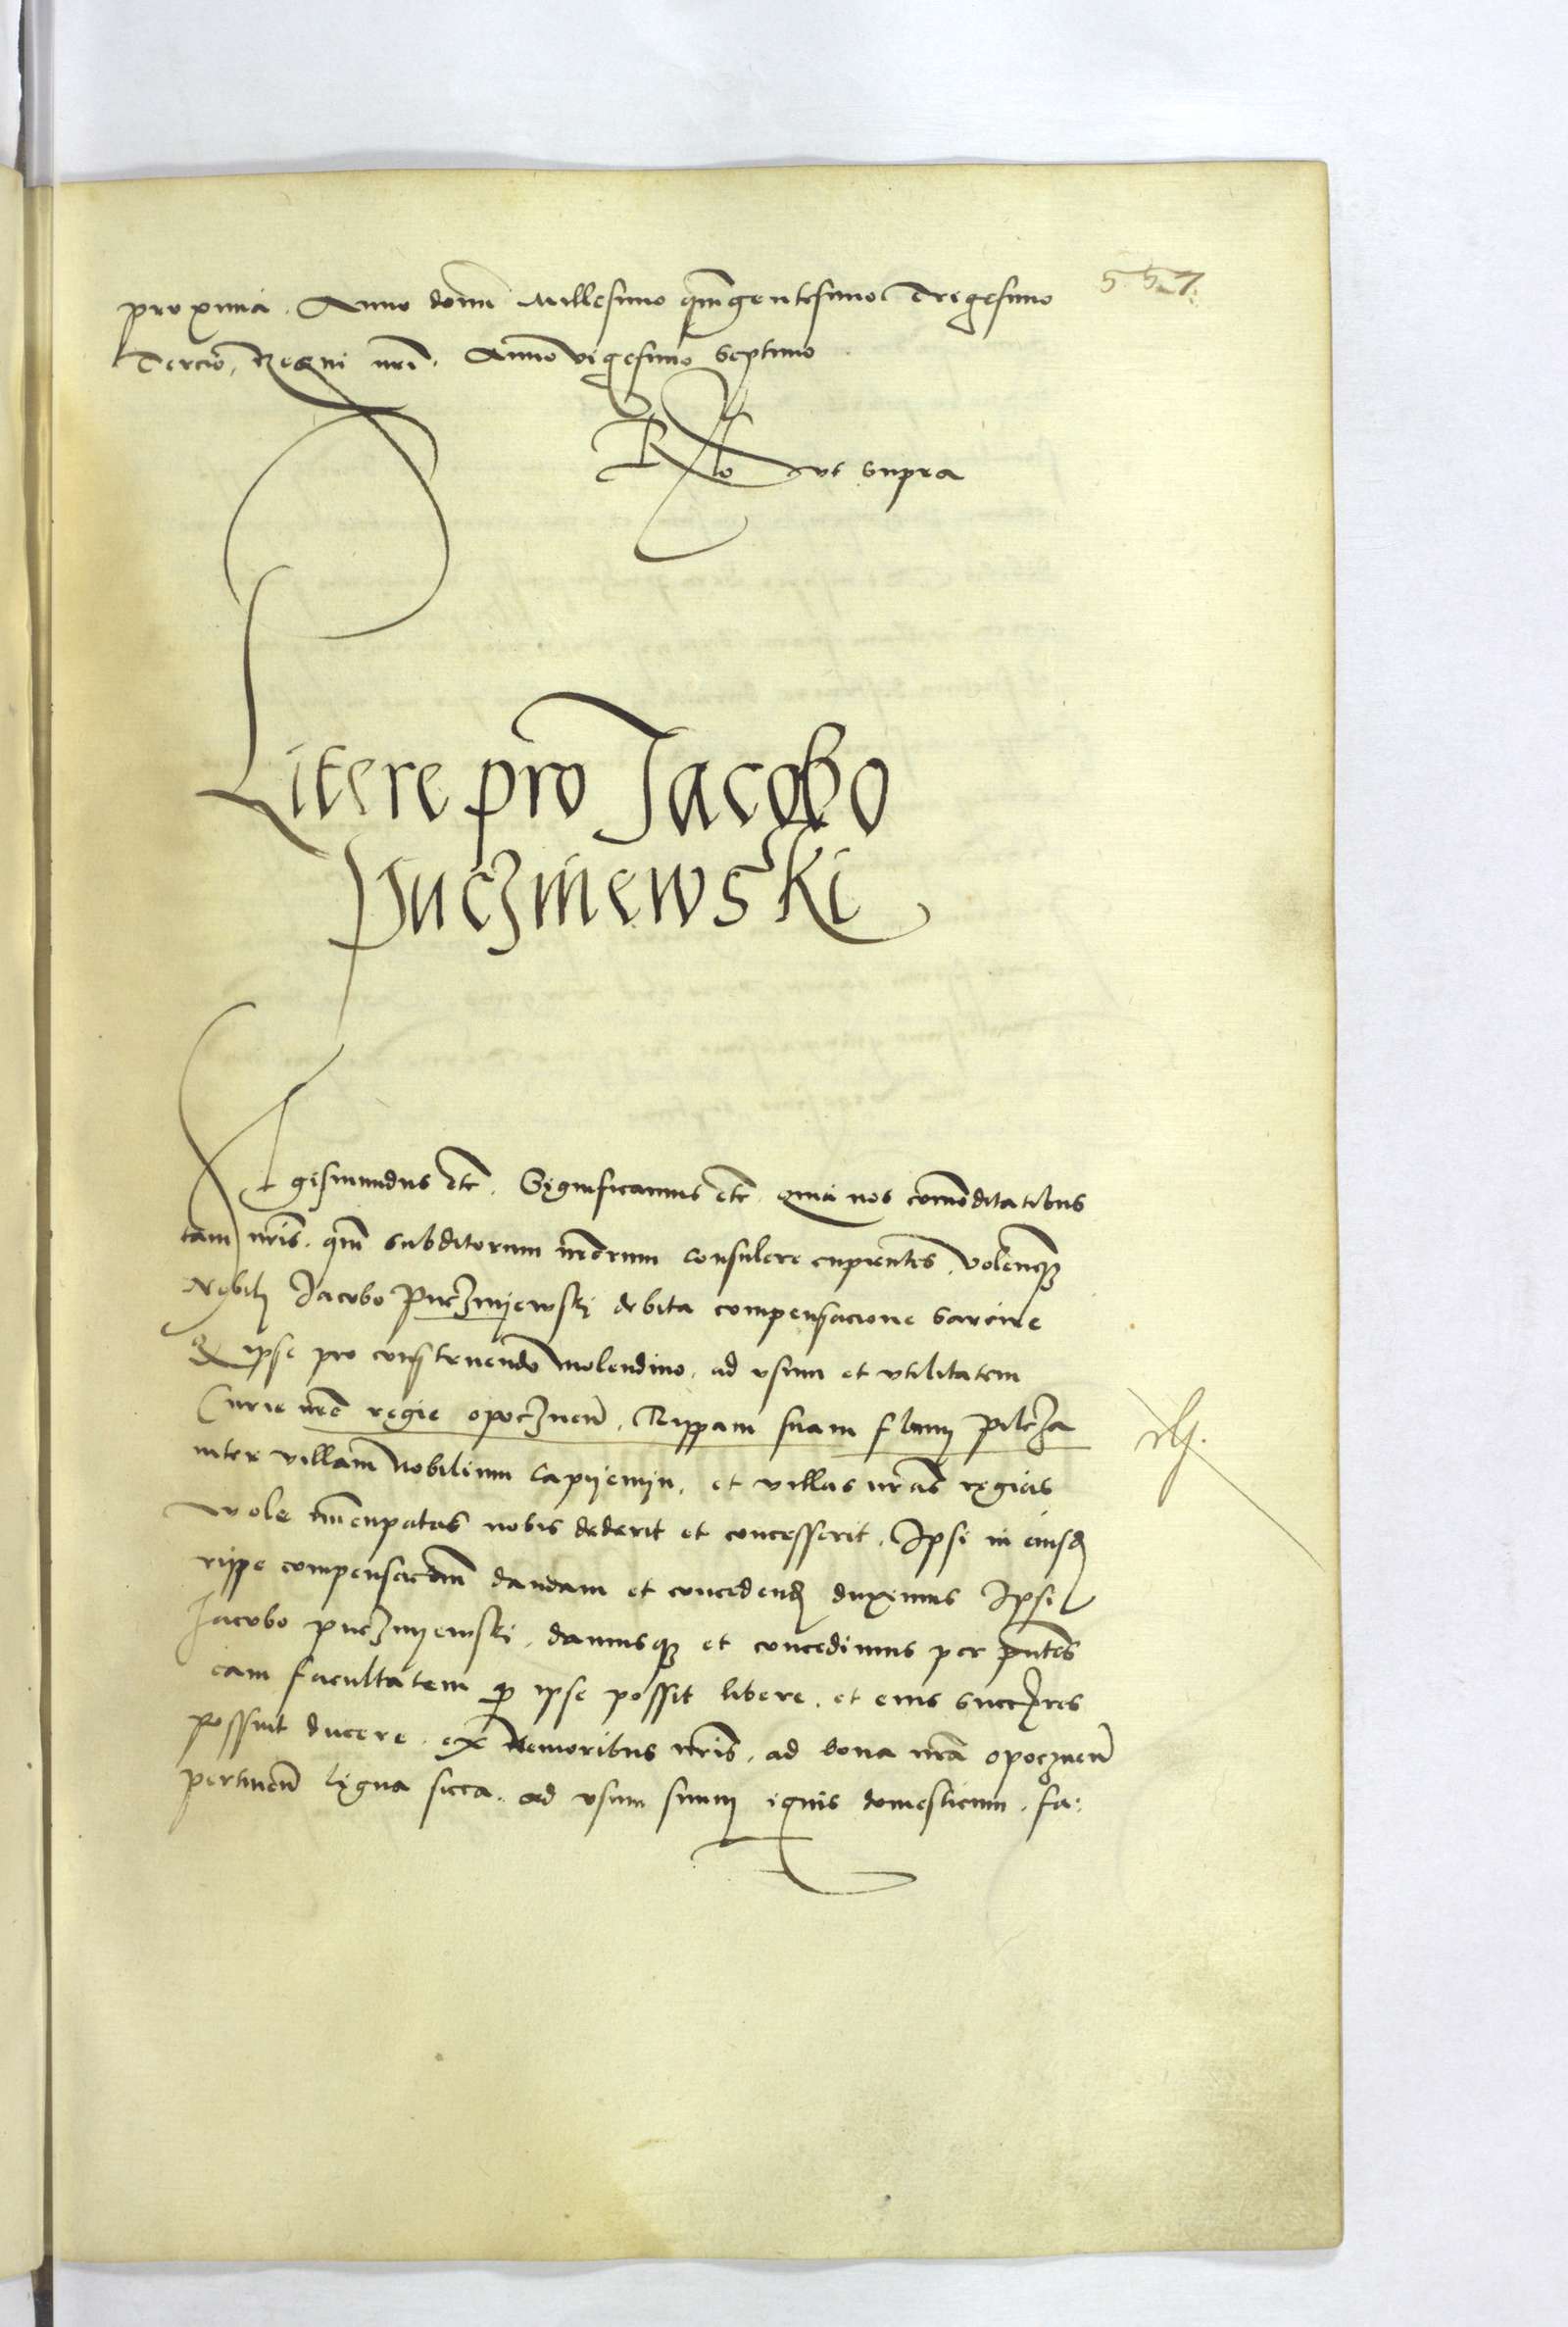 557.
proxima. Anno domī Millesimo qūigentesimo Trigesimo
Tercio, Regni nrī. Anno vigesimo septimo
Rlo ut supra
Litere pro Jacobo
Puczniewski
Sigismundus etc. Significamus etc. quia nos comoditatibus
tam nrīs. qm̄ subditorum nrōrum consulere cupientes, volentesqȝ
Nobili Jacobo Pucznijewskj debita compensacione sarcire
Qꝫ ipse pro construendo molendino. ad usum et utilitatem
Curie nrē regie opocznen̄. Rippam suam fluuij Pilcza
inter villam Nobilium Capijemijn. et villas nrās regias
wole nūcupatas nobis dederit et concesserit. Ipsi in eiusd̄
rippe compensacōem dandam et concedend̄ duximus Ipsi
Jacobo pucznijewskj. damusqȝ et concedimus per pn̄tes
eam facultatem qꝫ ipse possit libere. et eius succ̄res
possint ducere. ex Nemoribus nrīs. ad bona nrā opocznen̄
pertinen̄ ligna sicca. ad usum suum ignis domesticum. fa: